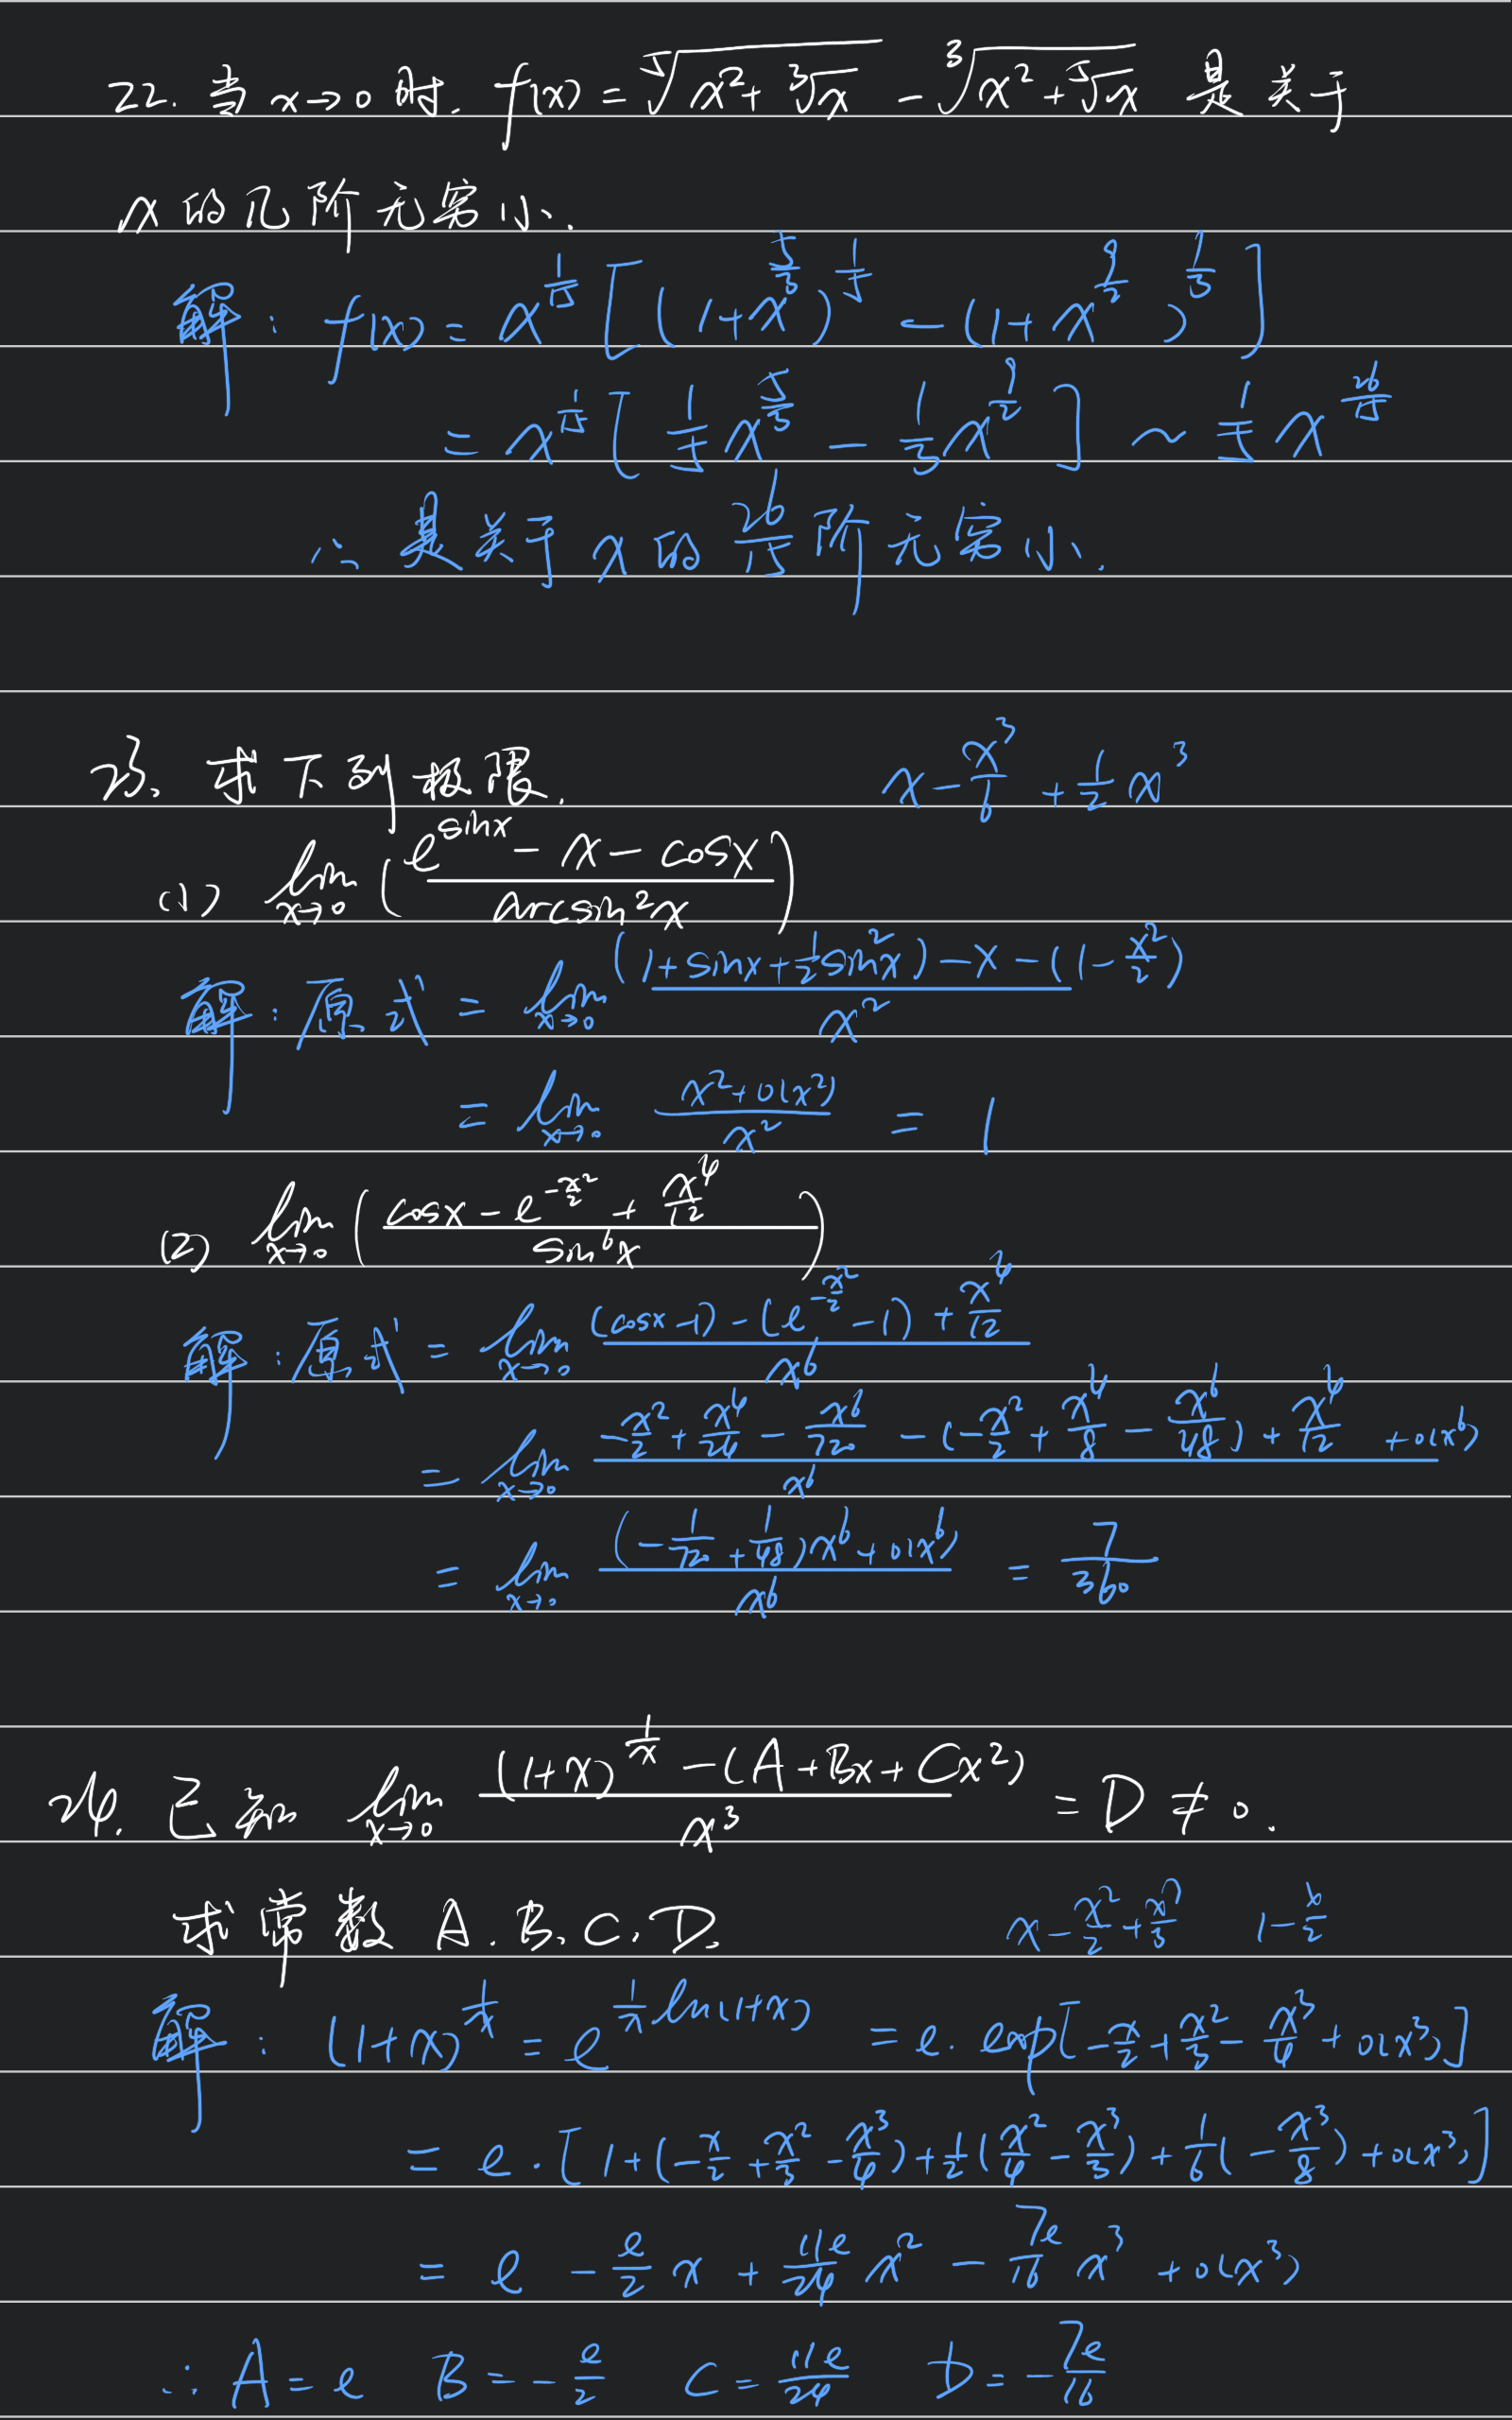 22. 当 x→0 时. f(x) = ⁵√(x² + ³√x) - ³√(x² + ⁵√x) 是关于
x的几阶无穷小.
解: f(x) = x^(1/15) [(1+x^(5/3))^(1/5) - (1+x^(9/5))^(1/3)]
= x^(1/15) [1/5 x^(5/3) - 1/3 x^(9/5)] ~ 1/5 x^(26/15)
∴ 是关于 x 的 26/15 阶无穷小.
23. 求下列极限.
x - x³/6 + 1/2 x³
(1) lim x→0 ((e^sinx - x - cosx)/(arcsin²x))
解: 原式 = lim x→0 ((1+sinx+1/2 sin²x) - x - (1 - x²/2))/x²
= lim x→0 (x²+o(x²))/x² = 1
(2) lim x→0 ((cosx - e^(-x²/2) + x⁴/12)/(sin⁶x))
解: 原式 = lim x→0 ((cosx - 1) - (e^(-x²/2) - 1) + x⁴/12)/x⁶
= lim x→0 (-x²/2 + x⁴/24 - x⁶/720 - (-x²/2 + x⁴/8 - x⁶/48) + x⁴/12 + o(x⁶))/x⁶
= lim x→0 ((-1/720 + 1/48)x⁶ + o(x⁶))/x⁶ = 7/360
24. 已知 lim x→0 ((1+x)^(1/x) - (A+Bx+Cx²))/x³ = D ≠ 0.
求常数 A.B.C.D.
x - x²/2 + x³/3 1 - x/2
解: (1+x)^(1/x) = e^(1/x ln(1+x)) = e·exp[-x/2 + x²/3 - x³/4 + o(x³)]
= e·[1+(-x/2 + x²/3 - x³/4) + 1/2(x²/4 - x³/3) + 1/6(-x³/8) + o(x³)]
= e - e/2 x + 11e/24 x² - 7e/16 x³ + o(x³)
∴ A = e B = -e/2 C = 11e/24 D = -7e/16